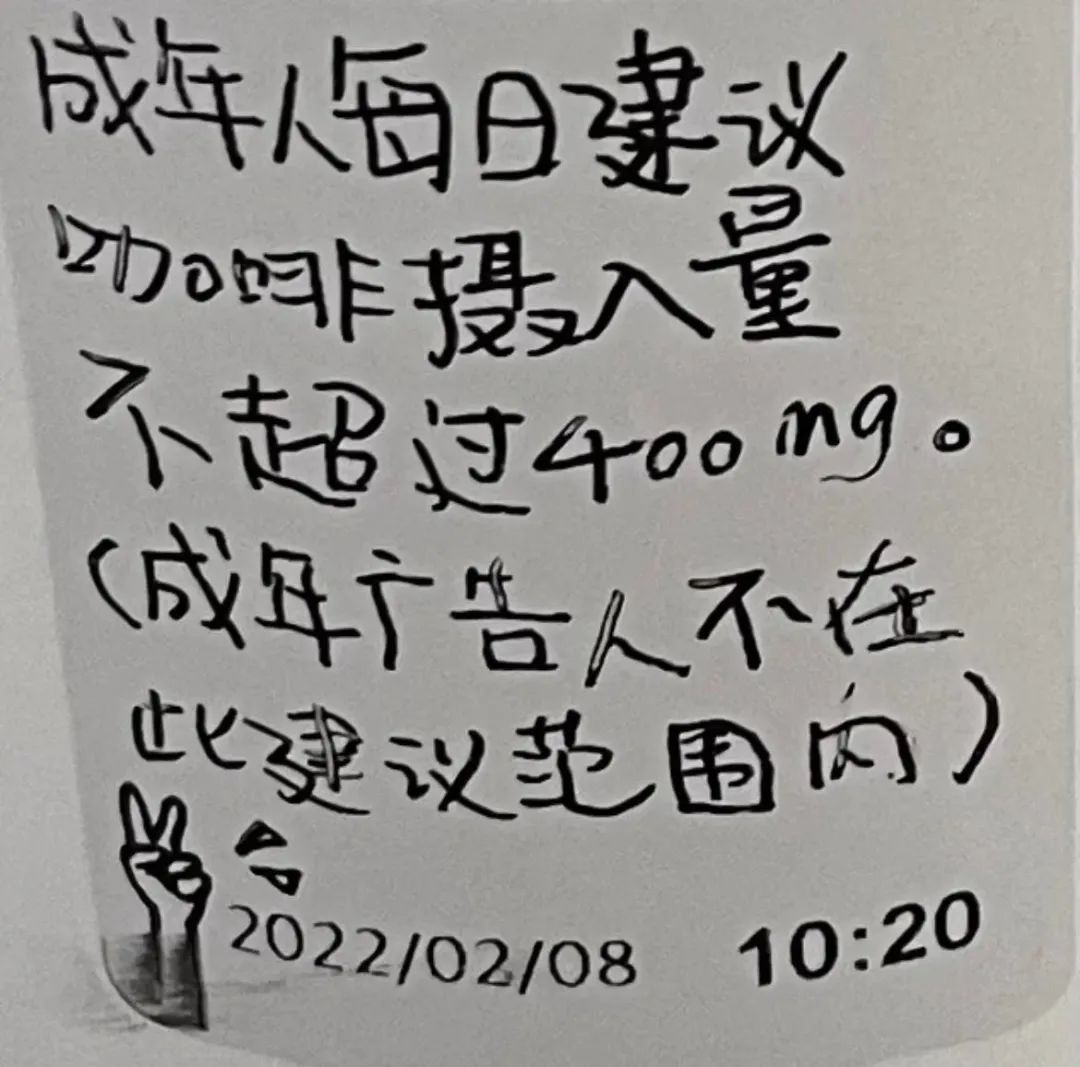 成年人每日建议
咖啡摄入量
不超过400mg。
(成年广告人不在
此建议范围内)
2022/02/08 10:20